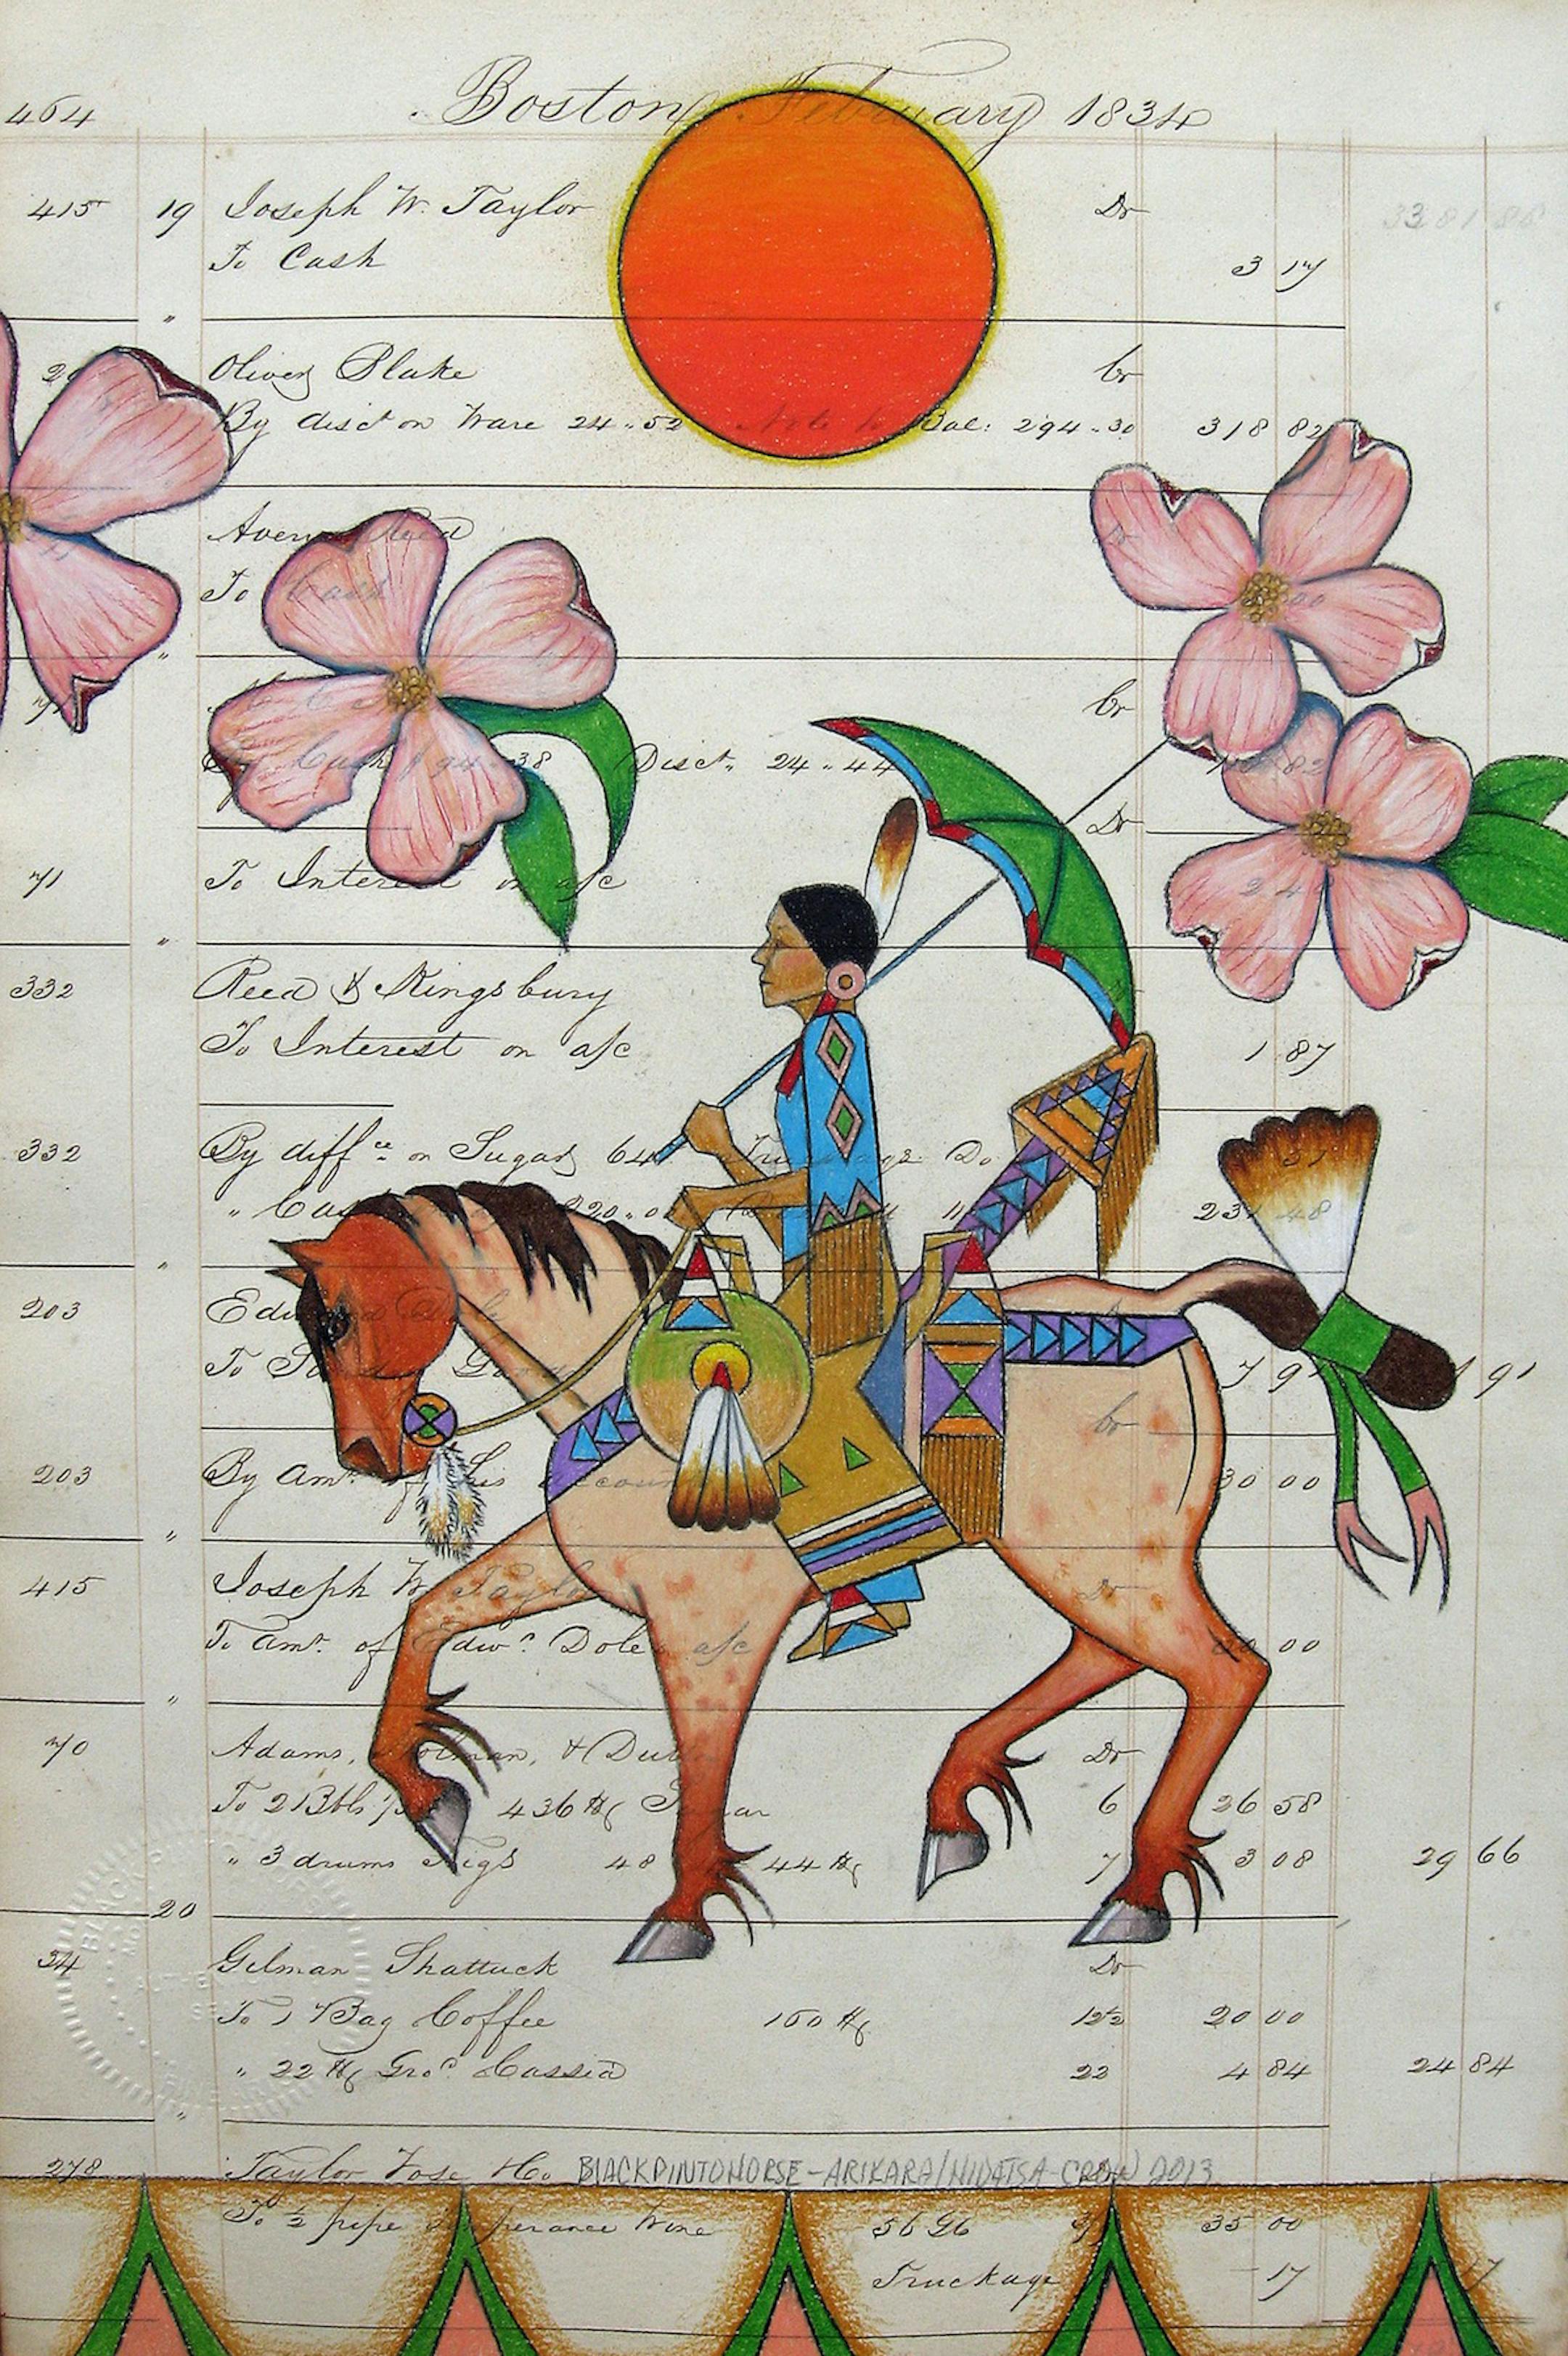 464 Boston, February 1834
415 19 Joseph W. Taylor Dr 3381 88
To Cash 3 17
"
Oliver Blake Cr
By disct on Ware 24.52 Note to Bal: 294.30 318 82
Avery Reed Dr
To Cash 00
"
71 Cr
By Cash 194 38 Disct. 24.44 82
Dr
71 To Interest on a/c 24
"
332 Reed & Kingsbury
To Interest on a/c 1 87
332 By diffce on Sugar 64 Truckage Do 51
" Cas 220.00 231 48
"
203 Edward Dr
To 7 91 91
Cr
203 By Amt. of his account 30 00
"
415 Joseph W. Taylor Dr
To Amt. of Edwd. Dole a/c 00
"
70 Adams, Holman, & Dr
To 2 Bbls 436 lb Sugar 6 26 58
" 3 drums Figs 48 44 lb 7 3 08 29 66
20
54 Gilman Shattuck Dr
To 1 Bag Coffee 160 lb 12½ 20 00
" 22 lb Gro. Cassia 22 4 84 24 84
"
278 Taylor Vose & Co BLACKPINTOHORSE-ARIKARA/HIDATSA-CROW 2013
To ½ pipe Temperance Wine 56 Gs 35 00
Truckage 17 17